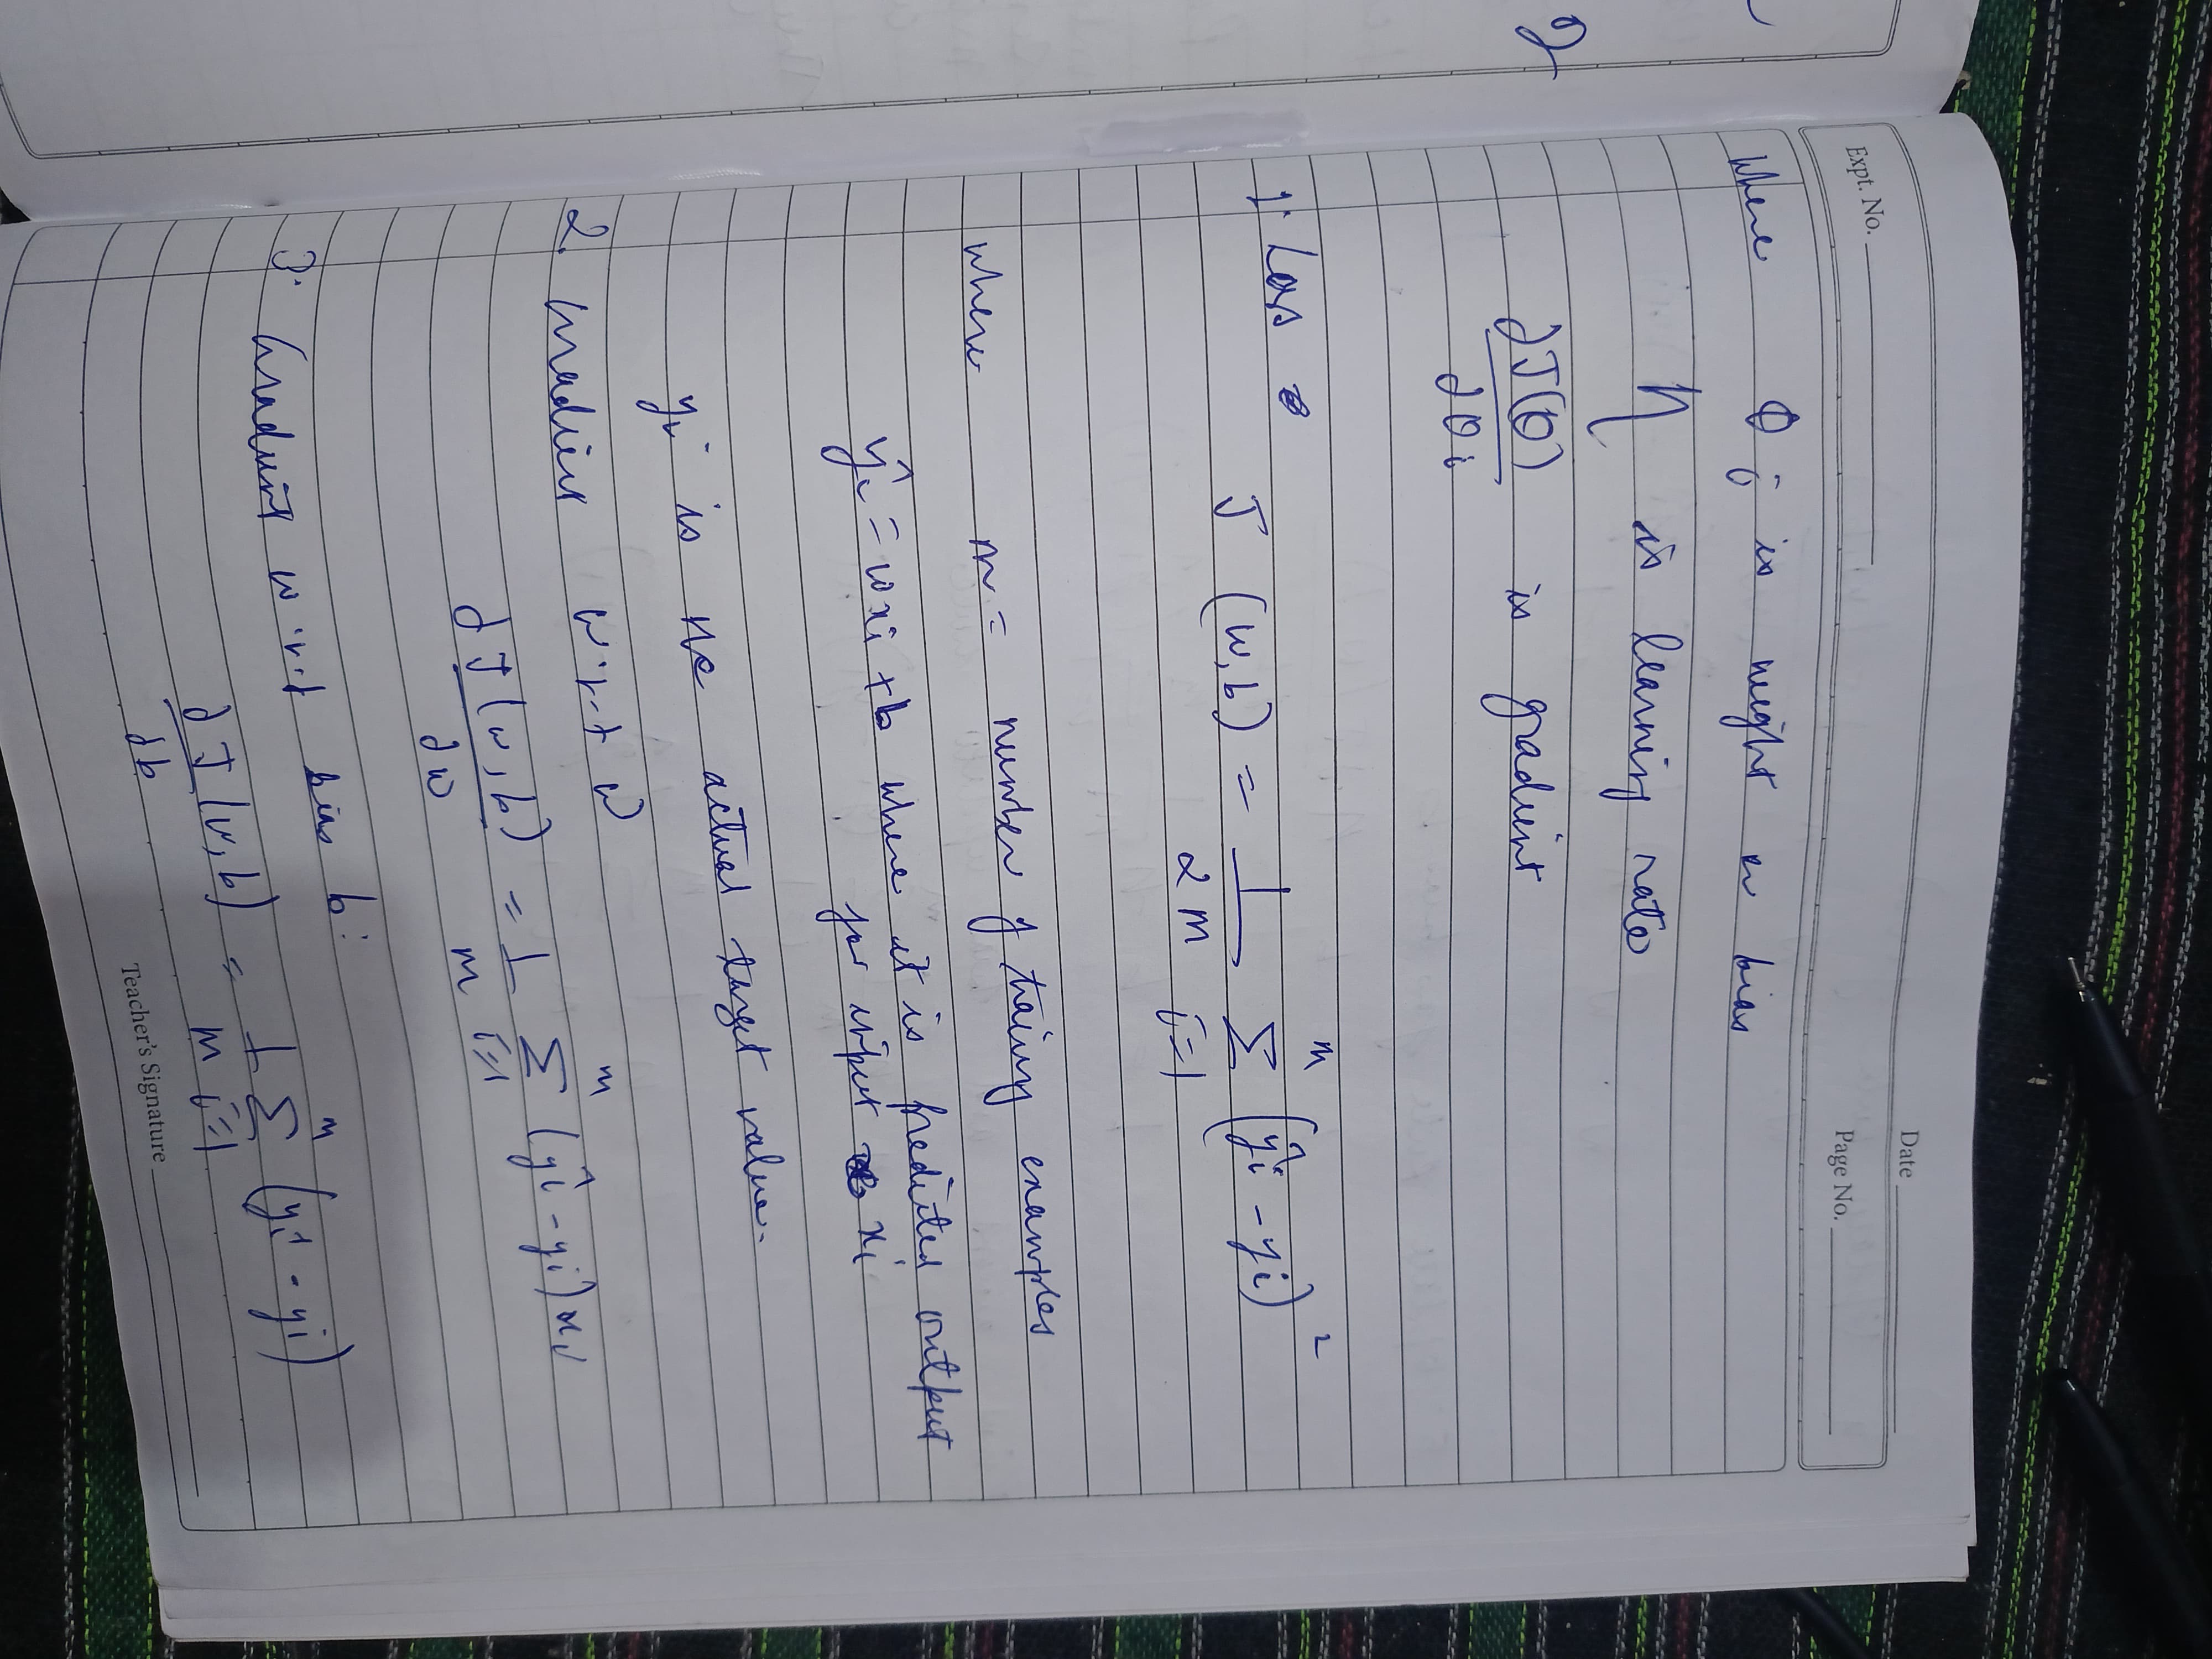 Date
Expt. No.
Page No.
Where θi is weight or bias
η is learning rate
∂J(θ)/∂θi is gradient
1. Loss
J (w,b) = 1/2m Σ_{i=1}^{m} (ŷi - yi)²
where m = number of traiing examples
ŷi = wxi + b where it is predicted output
for input xi
yi is the actual target value.
2. Gradient w.r.t w
∂J(w,b)/∂w = 1/m Σ_{i=1}^{m} (ŷi - yi) xi
3. Gradient w.r.t bias b:
∂J(w,b)/∂b = 1/m Σ_{i=1}^{m} (ŷi - yi)
Teacher's Signature